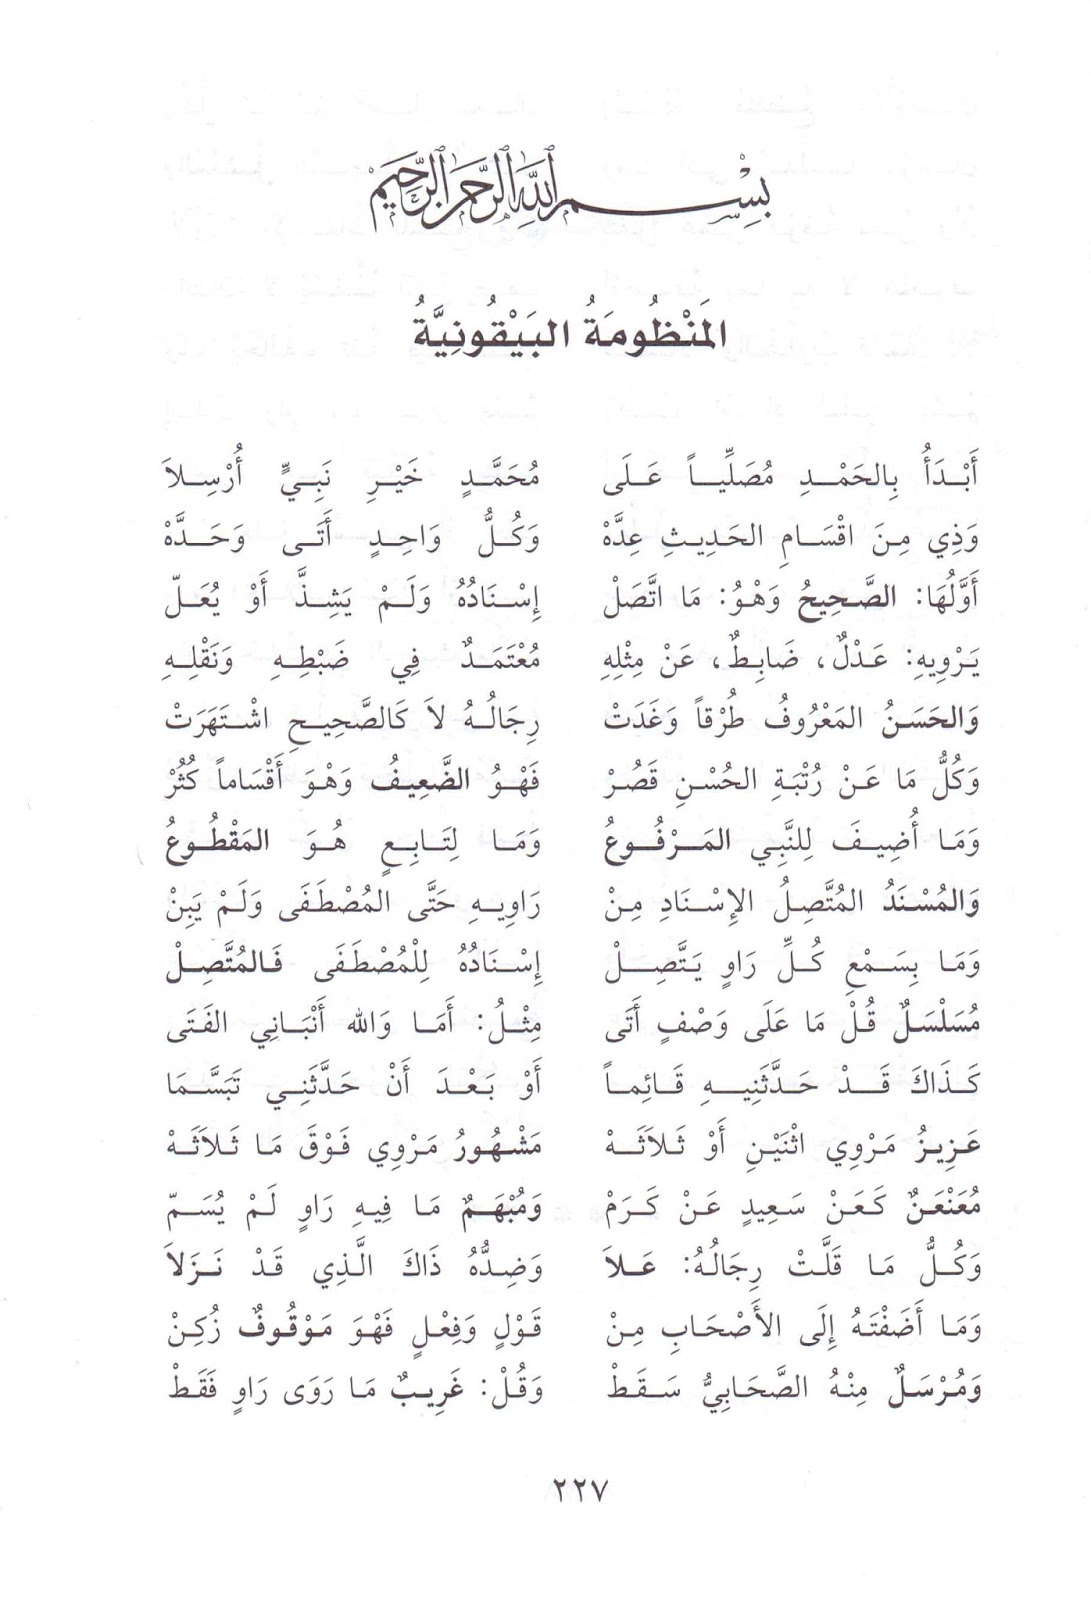 بِسْمِ ٱللَّهِ ٱلرَّحْمَنِ ٱلرَّحِيمِ
المَنْظُومَةُ البَيْقُونِيَّةُ
أَبْدَأُ بِالحَمْدِ مُصَلِّياً عَلَى مُحَمَّدٍ خَيْرِ نَبِيٍّ أُرْسِلاَ
وَذِي مِنَ اقْسَامِ الحَدِيثِ عِدَّهْ وَكُلُّ وَاحِدٍ أَتَى وَحَدَّهْ
أَوَّلُهَا: الصَّحِيحُ وَهْوُ: مَا اتَّصَلْ إِسْنَادُهُ وَلَمْ يَشِذَّ أَوْ يُعَلّ
يَرْوِيهِ: عَدْلٌ، ضَابِطٌ، عَنْ مِثْلِهِ مُعْتَمَدٌ فِي ضَبْطِهِ وَنَقْلِهِ
وَالحَسَنُ المَعْرُوفُ طُرْقاً وَغَدَتْ رِجَالُهُ لاَ كَالصَّحِيحِ اشْتَهَرَتْ
وَكُلُّ مَا عَنْ رُتْبَةِ الحُسْنِ قَصُرْ فَهْوُ الضَّعِيفُ وَهْوَ أَقْسَاماً كُثُرْ
وَمَا أُضِيفَ لِلنَّبِي المَرْفُوعُ وَمَا لِتَابِعٍ هُوَ المَقْطُوعُ
وَالمُسْنَدُ المُتَّصِلُ الإِسْنَادِ مِنْ رَاوِيهِ حَتَّى المُصْطَفَى وَلَمْ يَبِنْ
وَمَا بِسَمْعِ كُلِّ رَاوٍ يَتَّصِلْ إِسْنَادُهُ لِلْمُصْطَفَى فَالمُتَّصِلْ
مُسَلْسَلٌ قُلْ مَا عَلَى وَصْفٍ أَتَى مِثْلُ: أَمَا وَالله أَنْبَانِي الفَتَى
كَذَاكَ قَدْ حَدَّثَنِيهِ قَائِماً أَوْ بَعْدَ أَنْ حَدَّثَنِي تَبَسَّمَا
عَزِيزُ مَرْوِي اثْنَيْنِ أَوْ ثَلاَثَهْ مَشْهُورُ مَرْوِي فَوْقَ مَا ثَلاَثَهْ
مُعَنْعَنٌ كَعَنْ سَعِيدٍ عَنْ كَرَمْ وَمُبْهَمٌ مَا فِيهِ رَاوٍ لَمْ يُسَمّ
وَكُلُّ مَا قَلَّتْ رِجَالُهُ: عَلاَ وَضِدُّهُ ذَاكَ الَّذِي قَدْ نَزَلاَ
وَمَا أَضَفْتَهُ إِلَى الأَصْحَابِ مِنْ قَوْلٍ وَفِعْلٍ فَهْوَ مَوْقُوفٌ زُكِنْ
وَمُرْسَلٌ مِنْهُ الصَّحَابِيُّ سَقَطْ وَقُلْ: غَرِيبٌ مَا رَوَى رَاوٍ فَقَطْ
٢٢٧